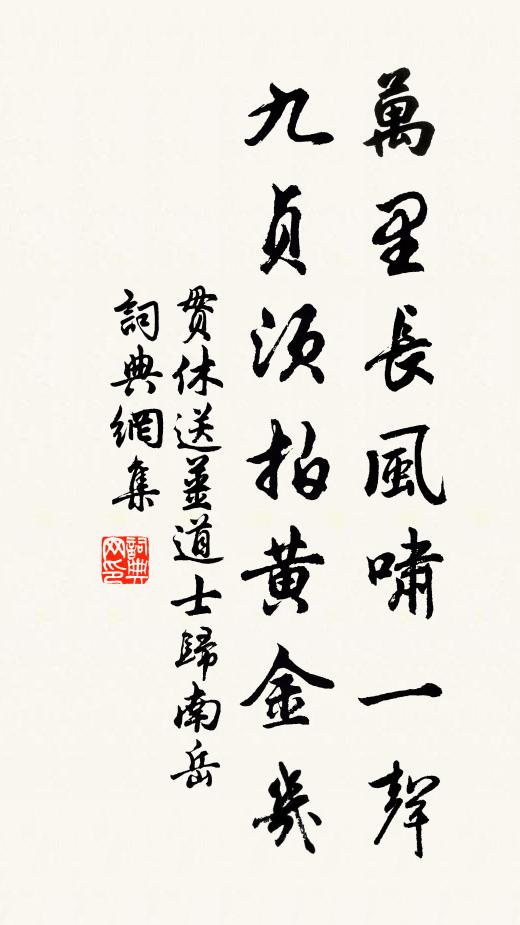 萬里長風嘯一聲
九貞須拍黄金几
貫休送薑道士歸南岳
詞典網集
詞典
网印